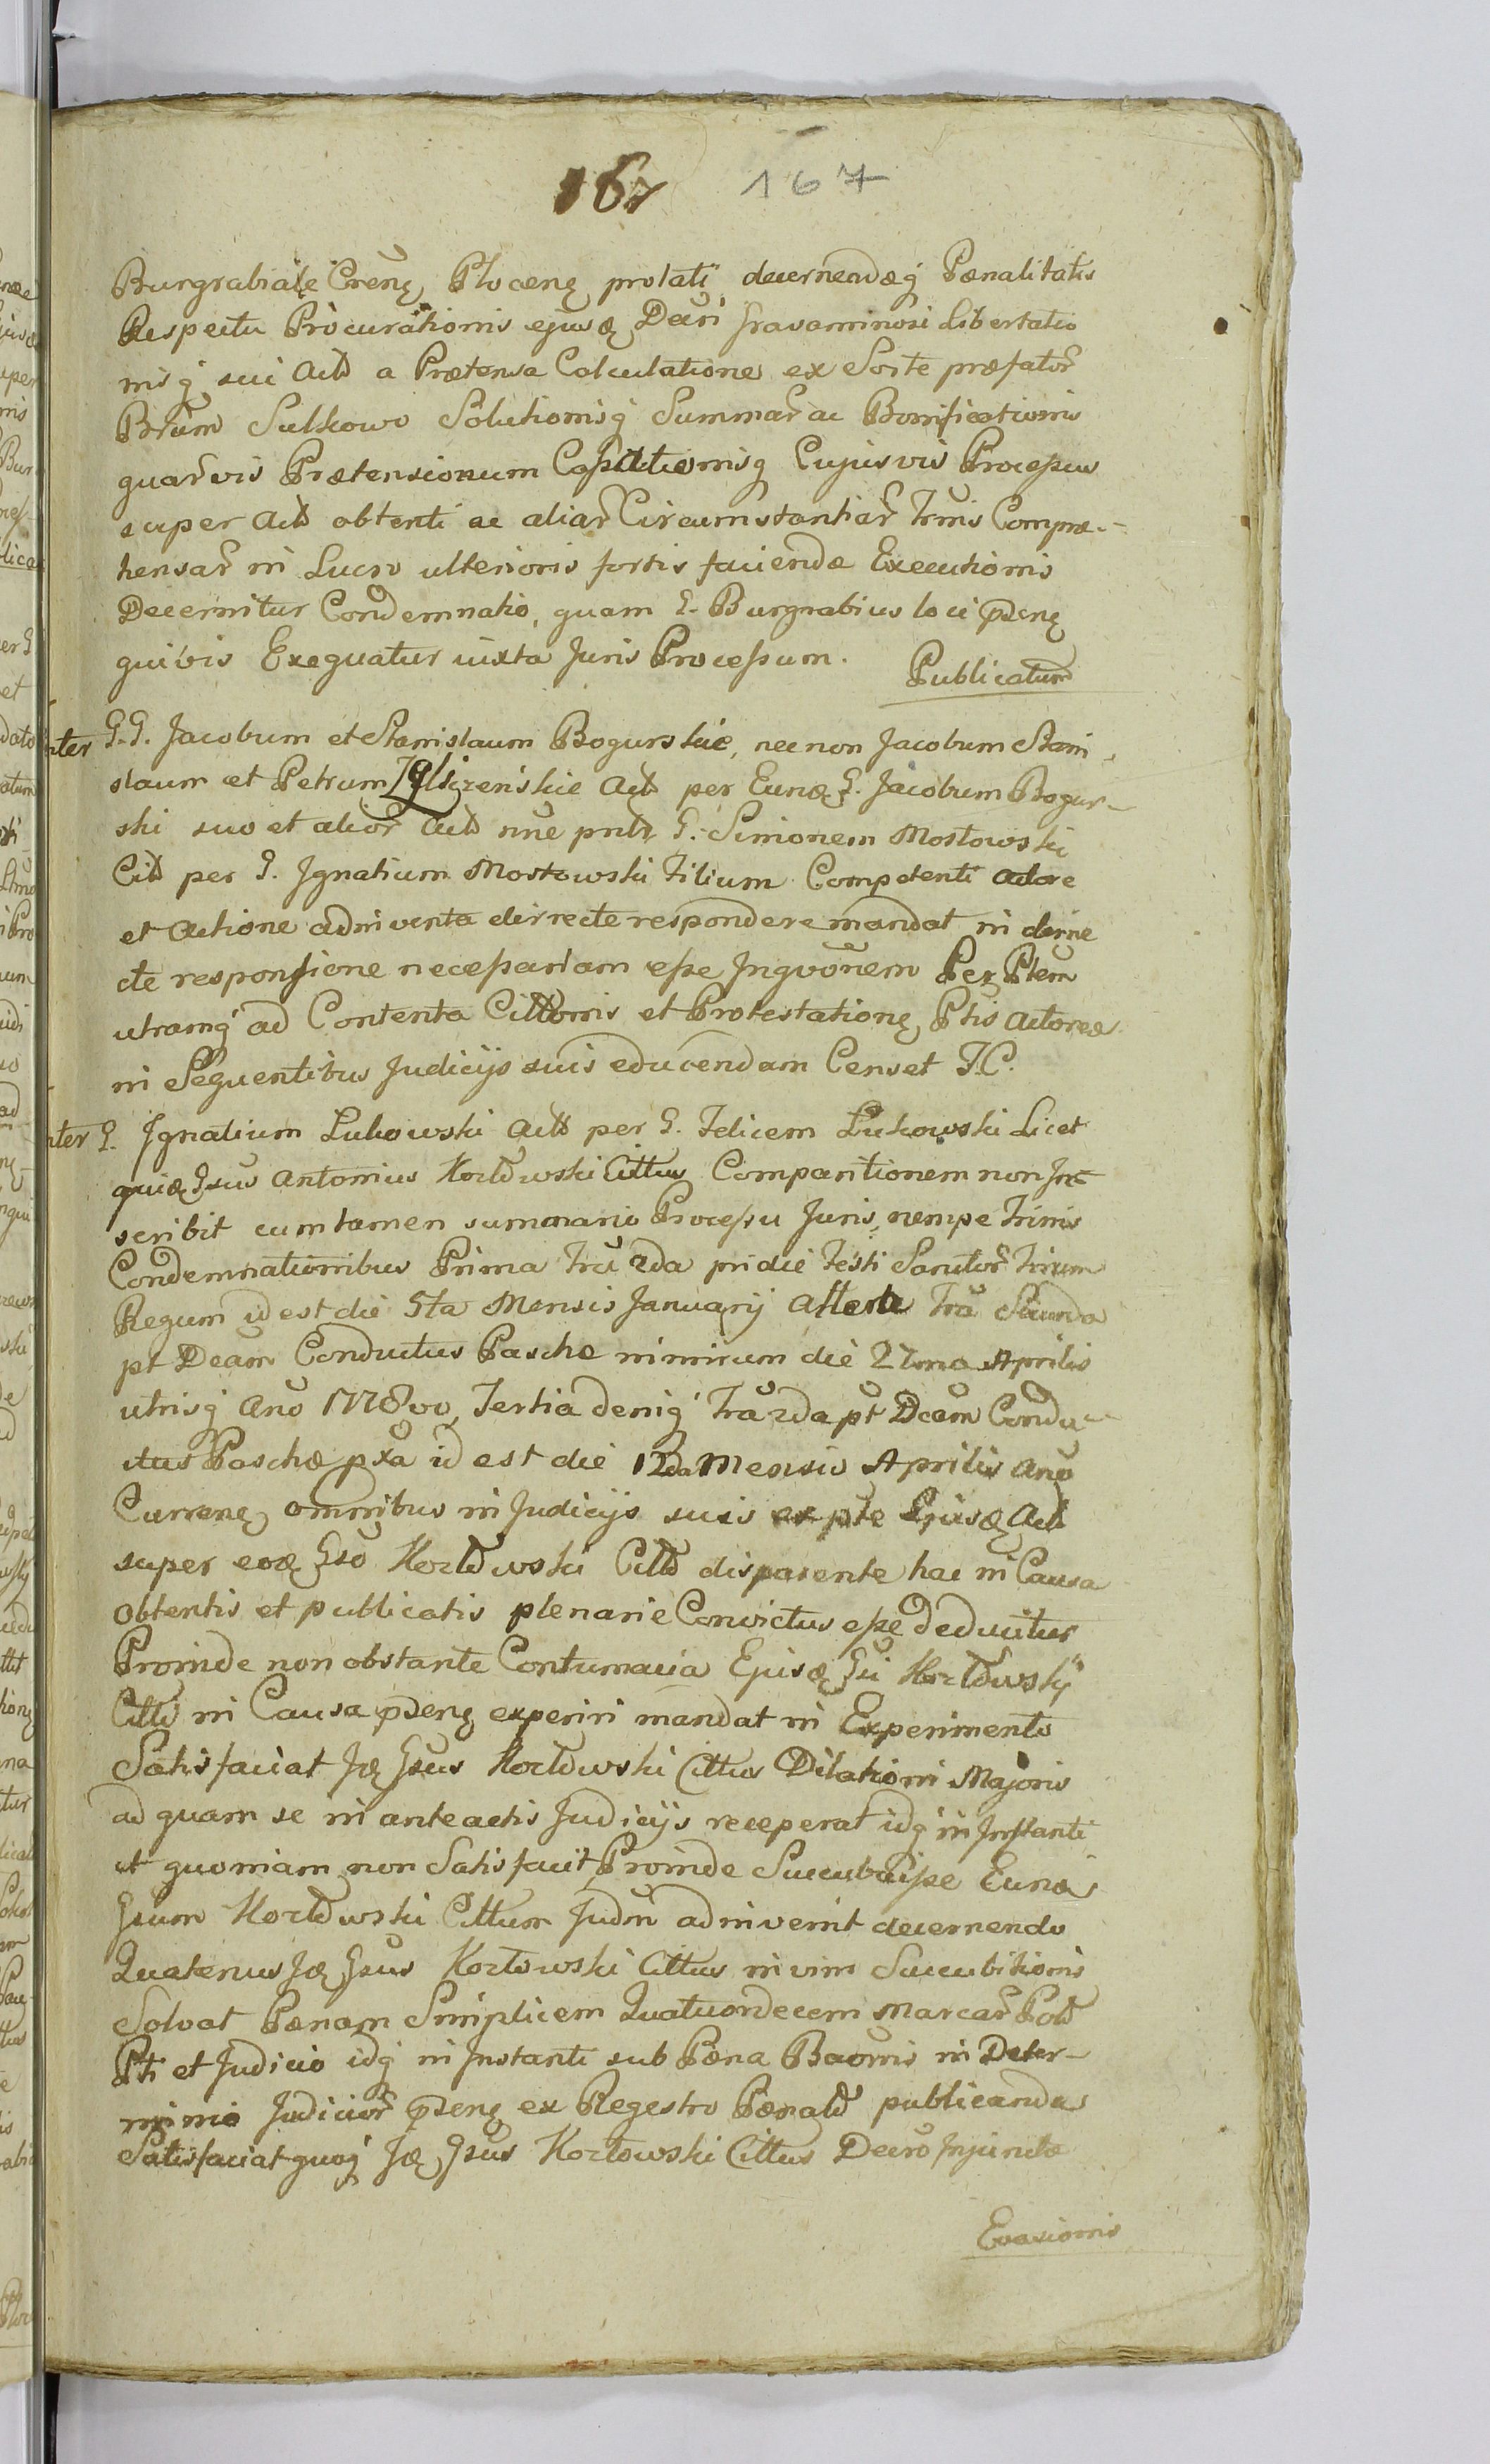 167 167
Burgrabiale Crenę Plocenę prolati decernendæq Pænalitatis
Respectu Procurationis ejusdę Decri Gravaminosi Libertatio
nisq sui Actt a Prætensa Calculatione ex Sorte præfator
Brum Sulkowo Solutionisq Summar ac Bonificationis
quarvis Prætensionum Cassationisq Cujusvis Processus
super Actt obtenti ac aliar Circumstantiar Trmis Compræ-
hensar in Lucro ulterioris fortis faciendæ Executionis
Decernitur Condemnatio, quam G. Burgrabius loci præsenę
quivis Exequatur iuxta Juris Processum. Publicatum
Inter G.G. Jacobum et Stanislaum Bogurskie, nec non Jacobum Stani
slaum et Petrum Iglizenskie Actt per Eundę G. Jacobum Bogur-
ski suo et alior Actt nne pntt G. Simonem Mostowski
Citt per G. Ignatium Mostowski Filium Competenti Actore
et Actione adinventa dirrecte respondere mandat in dirre
cte responsione necessariam esse Inqvonem Per Ptem
utramq ad Contenta Cittonis et Protestationę Ptis Actoreæ
in Sequentibus Judicijs suis educendam Censet J.C.
Inter G. Ignatium Lukowski Actt per G. Felicem Lukowski Licet
quidę Gsus Antonius Kozłowski Cittus Comparitionem non In-
scribit cum tamen summario Processu Juris, nempe Trinis
Condemnationibus Prima Fra 2da pridie Festi Sanctor Trium
Regum id est die 5ta Mensis Januarij Altera Fra Secunda
pt Dcam Conductus Paschæ nimirum die 27ma Aprilis
utrisq Ano 1778vo, Tertia deniq Fra 2da pt Dcam Condu-
ctus Paschæ pxa id est die 12da Mensis Aprilis Ano
Currenę omnibus in Judicijs suis ex pte Ejusdę Actt
super eodę Gso Kozłowski Citt disparente hac in Causa
obtentis et publicatis plenarie Convictus esse deducitur
Proinde non obstante Contumacia Ejusdę Gsi Kozłowskij
Citti in Causa præsenę experiri mandat in Experimento
Satisfaciat Idę Gsus Kozłowski Cittus Dilationi Majoris
ad quam se in anteactis Judicijs receperat idq in Instanti
et quoniam non Satisfacit, Proinde Succubuisse Eundę
Gsum Kozłowski Cittum Judm adinvenit decernendo
Quatenus Idę Gsus Kozłowski Cittus in vim Succubitionis
Solvat Pænam Simplicem Quatuordecem Marcar Poll
Pti et Judicio idq in Instanti sub Pæna Baonis in Deter-
minio Judicior præsenę ex Regestro Pænall publicanda
Satisfaciat quoq Idę Gsus Kozłowski Cittus Decro Injunctæ
Evasionis